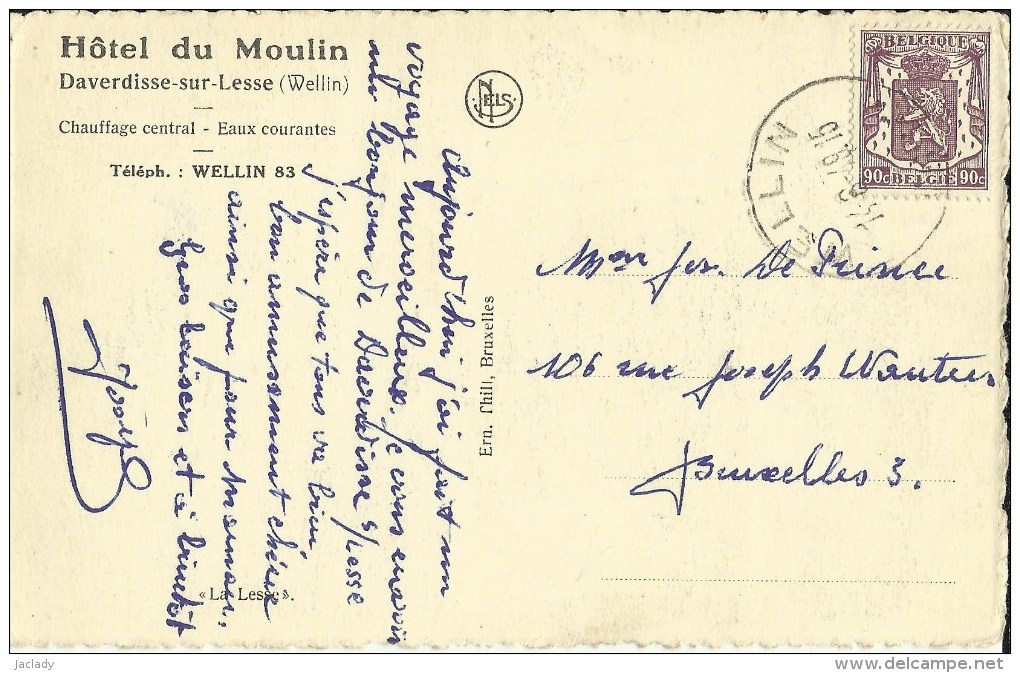 Hôtel du Moulin
Daverdisse-sur-Lesse (Wellin)
Chauffage central - Eaux courantes
Téléph. : WELLIN 83
NELS
BELGIQUE
90c BELGIE 90c
WELLIN
Aujourd'hui j'ai fait un
voyage merveilleux. Je vous envoie
un bonjour de Daverdisse s/Lesse
j'espère que tous va bien
bon amusement chérie
ainsi que pour maman,
Gros baisers et à bientôt
Joseph
Mme Jos. De Prince
106 rue Joseph Wauters
Bruxelles 3.
Ern. Thill, Bruxelles
«La Lesse».
jaclady
www.delcampe.net